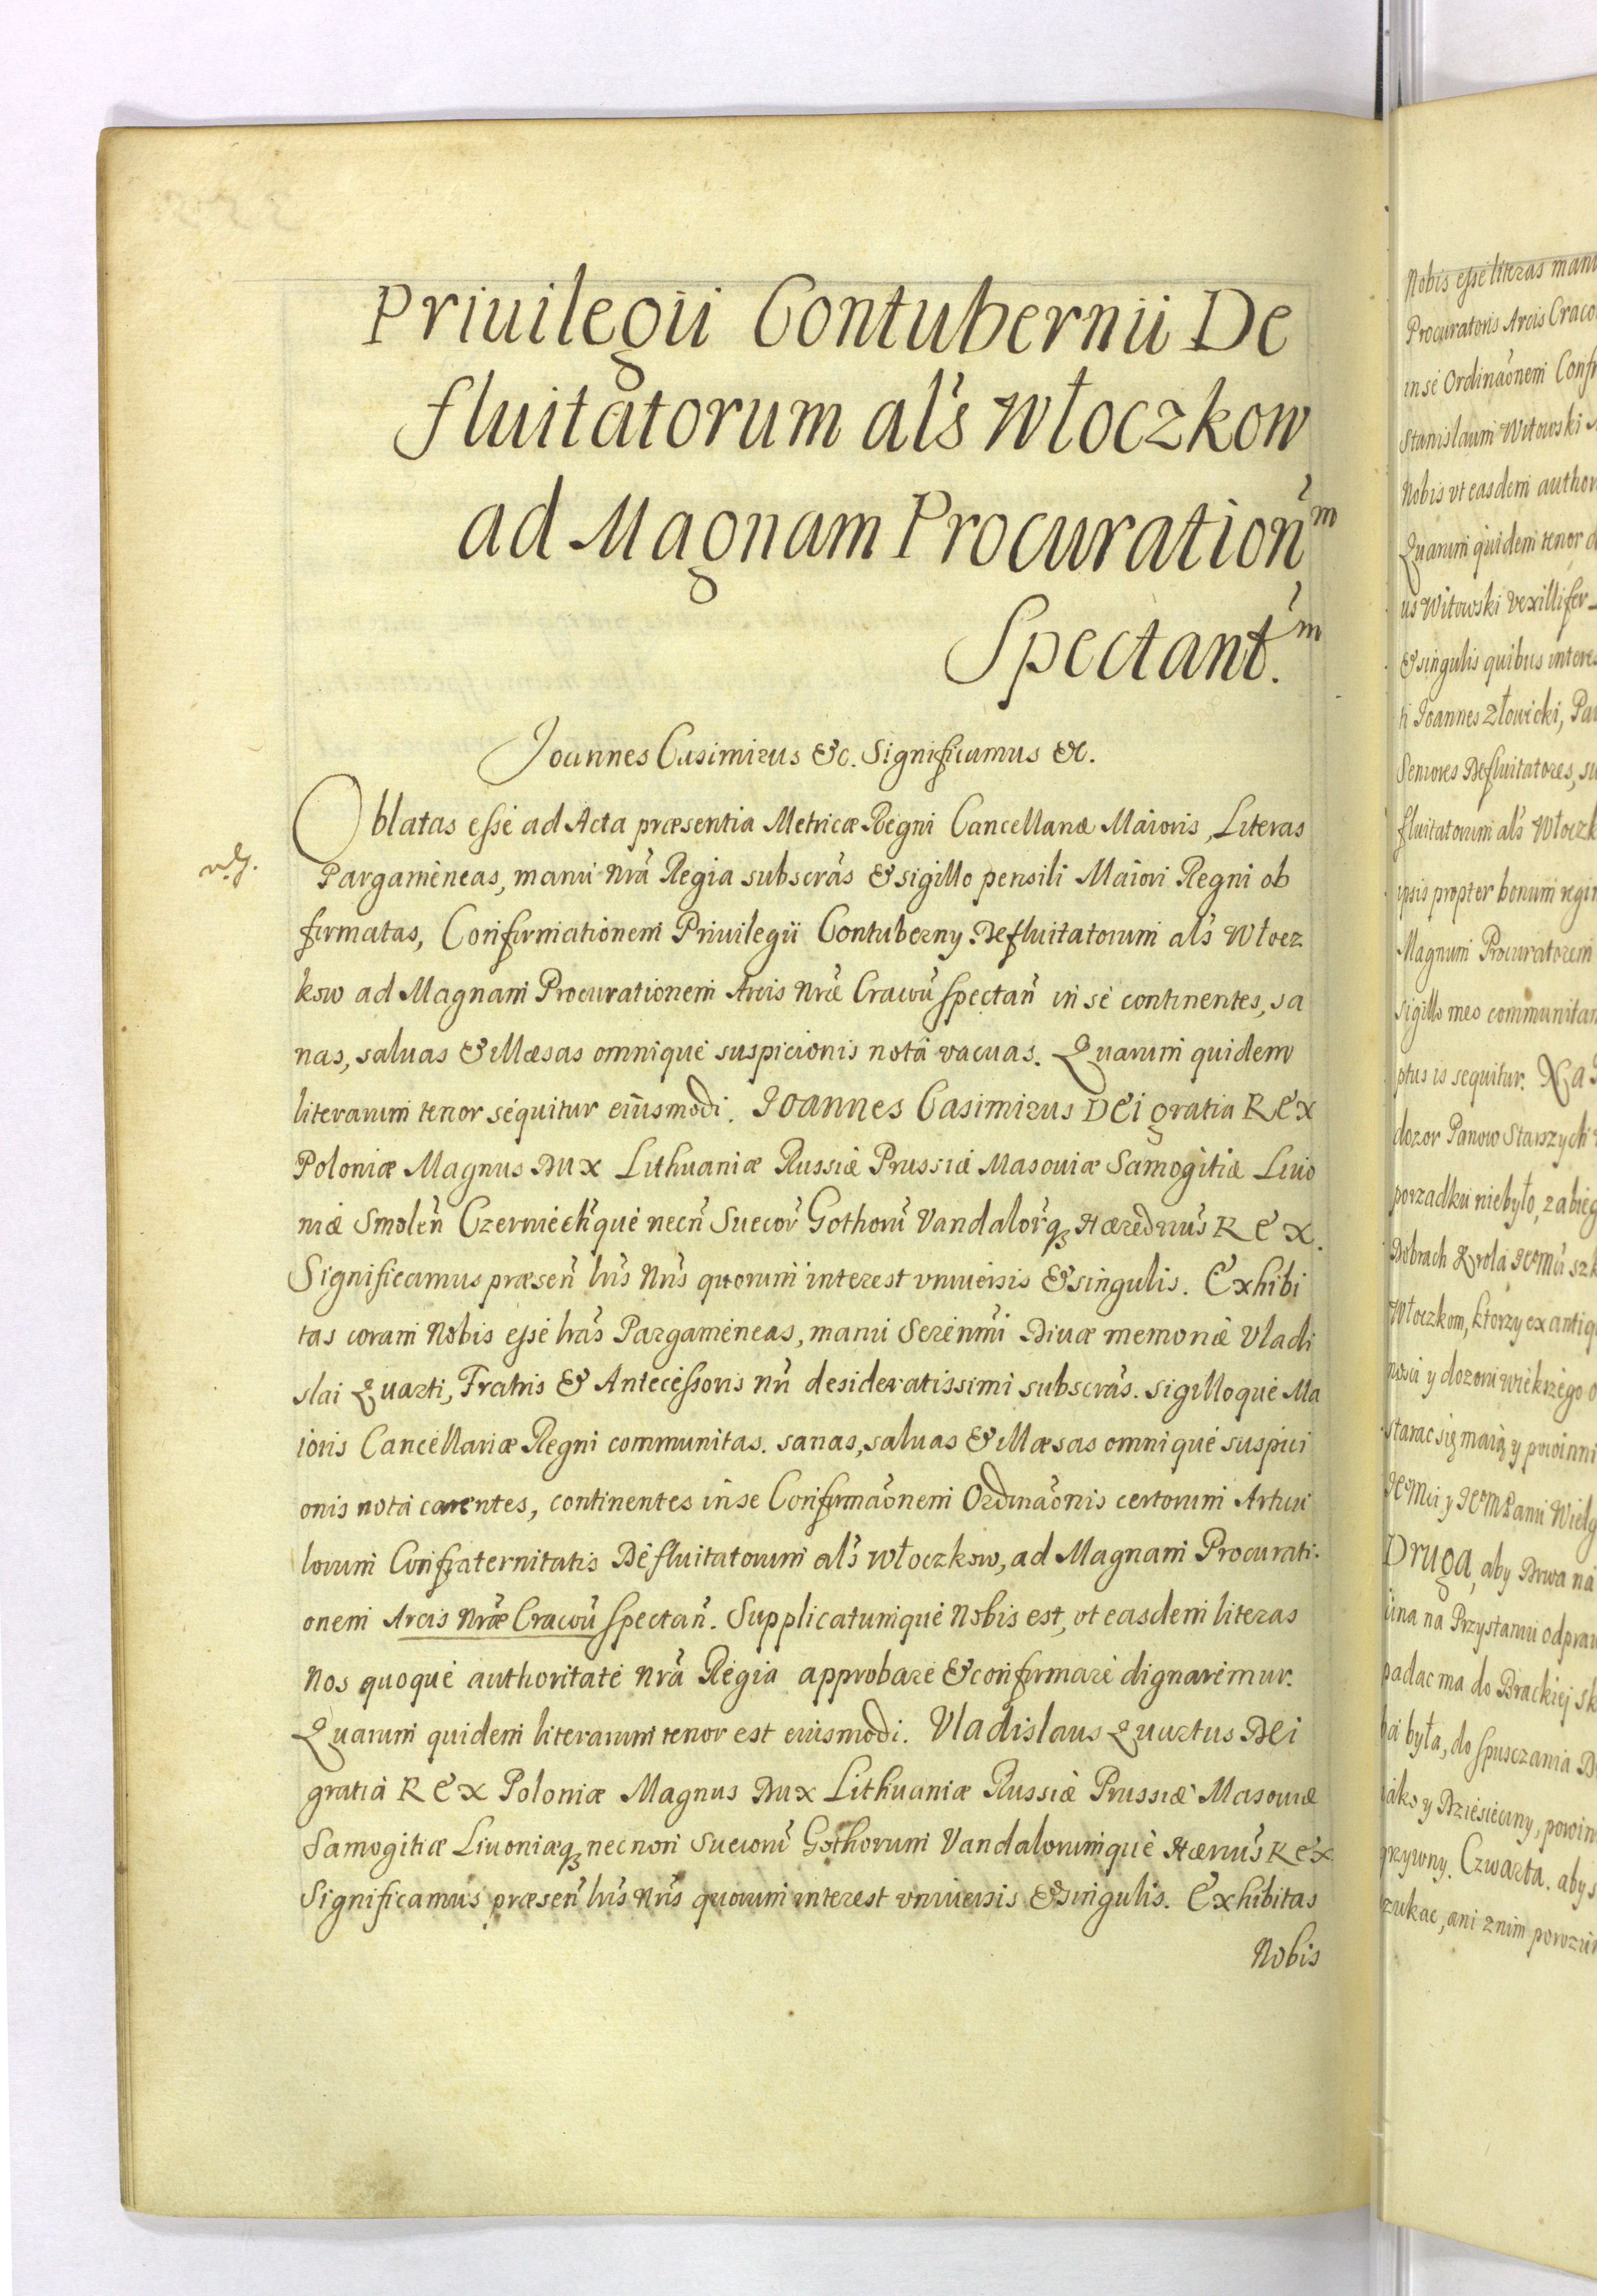 Priuilegii Contubernii De
fluitatorum als Włoczkow
ad Magnam Procuration̄m
Spectant.m
Joannes Casimirus &c. Significamus &c.
Oblatas esse ad Acta præsentia Metricæ Regni Cancellariæ Maioris, Literas
Pargameneas, manu nrã Regia subscrãs & sigillo pensili Maiori Regni ob
firmatas, Confirmationem Priuilegii Contuberny Defluitatorum als Włocz
kow ad Magnam Procurationem Arcis nræ Cracoū spectan̄ in se continentes, sa
nas, saluas & illæsas omnique suspicionis nota vacuas. Quarum quidem
literarum tenor sequitur eiusmodi. Joannes Casimirus DEi gratia REX
Poloniæ Magnus Dux Lithuaniæ Russiæ Prussiæ Masouiæ Samogitiæ Liuo
niæ Smolen̄ Czerniechq̄ue necn̄ Suecor̄ Gothorū Vandalor̄q; Hæreditus̄ REX.
Significamus præsen̄ lrīs nr̄is quorum interest vniuersis & singulis. Exhibi
tas coram Nobis esse lrãs Pargameneas, manu Serenm̄i Diuæ memoriæ Vladi
slai Quarti, Fratris & Antecessoris nr̄i desideratissimi subscrãs. sigilloque Ma
ioris Cancellariæ Regni communitas. sanas, saluas & illæsas omnique suspici
onis nota carentes, continentes in se Confirmãonem Ordinãonis certorum Articu
lorum Confraternitatis Defluitatorum als włoczkow, ad Magnam Procurati-
onem Arcis nræ Cracoū spectan̄. Supplicatumque Nobis est, vt easdem literas
nos quoque authoritate nrã Regia approbare & confirmare dignaremur.
Quarum quidem literarum tenor est eiusmodi. Vladislaus Quartus DEi
gratia REX Poloniæ Magnus Dux Lithuaniæ Russiæ Prussiæ Masouiæ
Samogitiæ Liuoniæq; necnon Suecorū Gothorum Vandalorumque Hærius̄ REX
Significamus præsen̄ lrīs nr̄is quorum interest vniuersis & singulis. Exhibitas
Nobis
Nobis esse literas manu
Procuratoris Arcis Craco
in se Ordinãonem Confr
Stanislaum Witowski
Nobis vt easdem author
Quarum quidem tenor
us Witowski Vexillifer
& singulis quibus interes
Joannes Złowicki, Pa
Seniores Defluitatores, su
fluitatorum als Włoczk
ipsis propter bonum regi
Magnum Procuratorem
sigillo meo communitam
ptus is sequitur. Na
dozor Panow Starszych
porzadku niebyło, zabieg
Dobrach Krola JeoMci sz
Włoczkom, ktorzy ex antiq
nosci y dozoru wiekszego
starac się maią y powinni
JeoMci y JeoMPanu Wielg
Druga, aby Drwa na
na na Przystaniu odpraw
padac ma do Brackiej sk
była, do spusczania
iako y Dziesieciny, powin
grzywny. Czwarta. aby
zukac, ani znim porozu